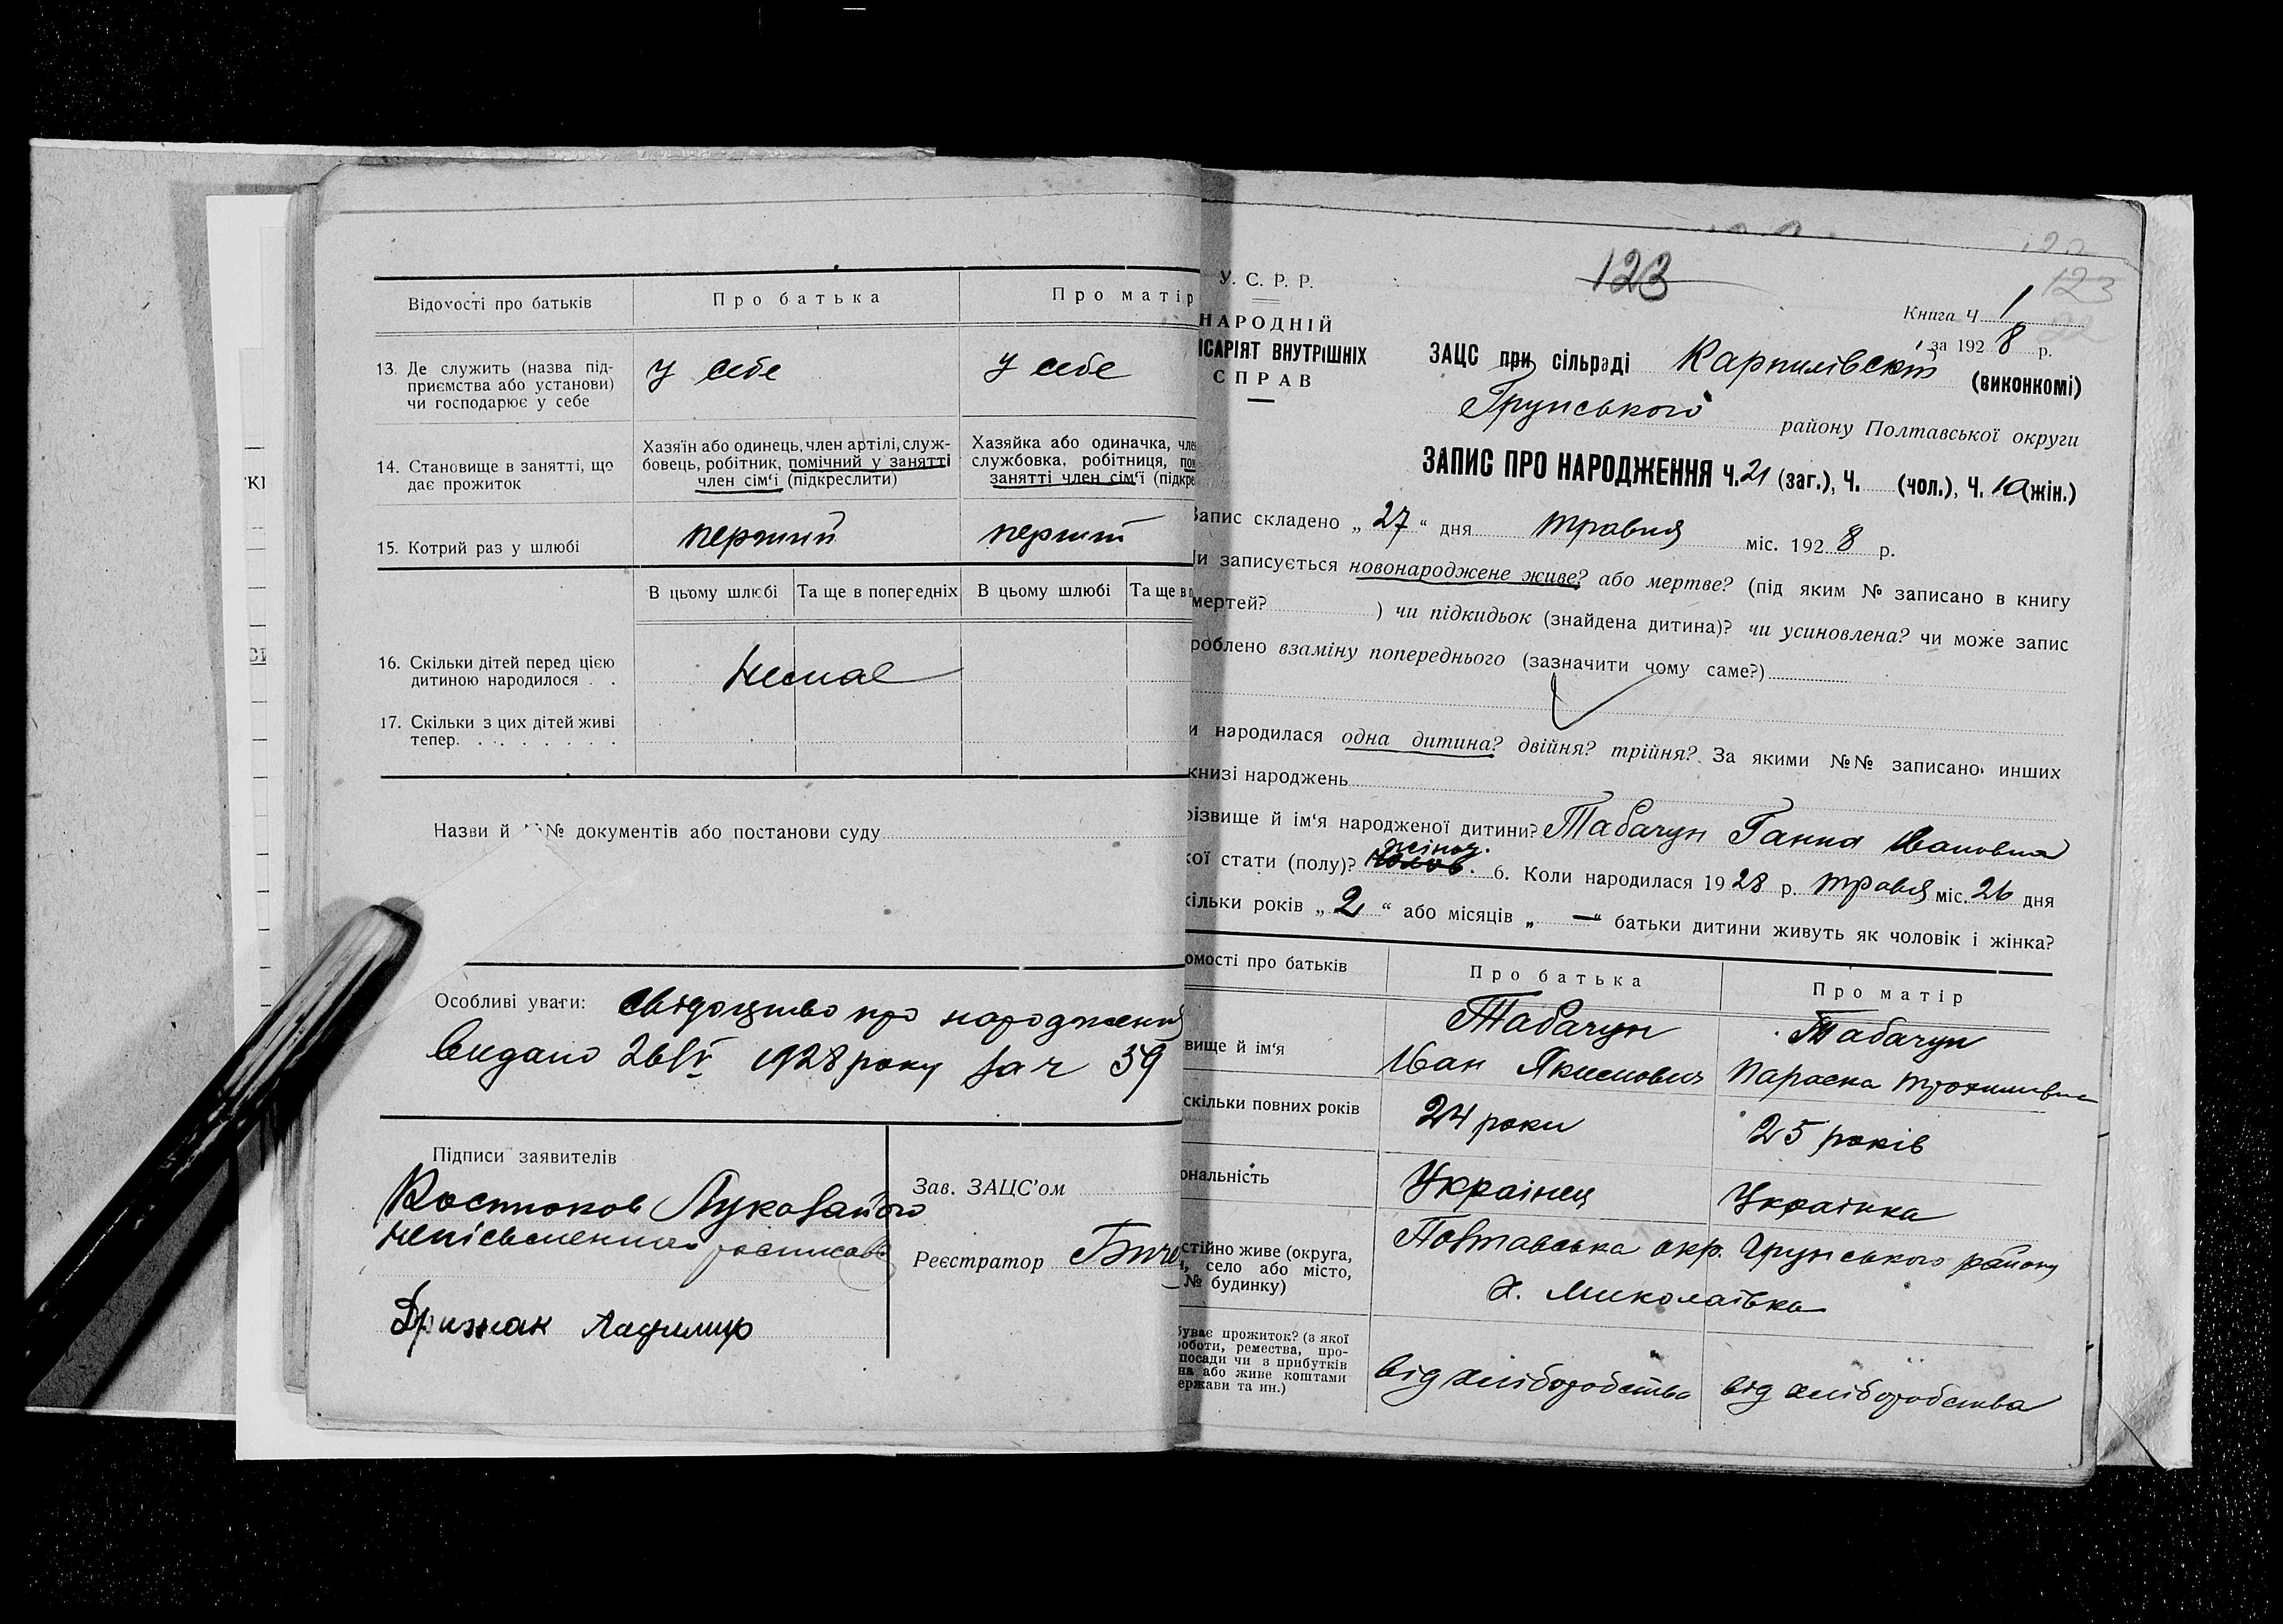 Відомості про батьків
Про батька
Про матір
13. Де служить (назва під-
приємства або установи)
чи господарює у себе
у себе
у себе
14. Становище в занятті, що
дає прожиток
Хазяїн або одинець, член артілі, служ-
бовець, робітник, помічний у занятті
член сім'ї (підкреслити)
Хазяйка або одиначка, чле
службовка, робітниця, по
занятті член сім'ї (підкре
15. Котрий раз у шлюбі
перший
В цьому шлюбі
Та ще в попередніх
В цьому шлюбі
Та ще в п
16. Скільки дітей перед цією
дитиною народилося . .
Немає
17. Скільки з цих дітей живі
тепер. . . . . . . .
Назви й №№ документів або постанови суду
Особливі уваги: свідоцтво про народження
видано 26/V 1928 року за ч 39
Підписи заявителів
Зав. ЗАЦС'ом
Реєстратор
У. С. Р. Р.
НАРОДНІЙ
ІСАРІЯТ ВНУТРІШНІХ
СПРАВ
123
123
Книга Ч 1
за 1928 р.
ЗАЦС при сільраді Карпилівскій (виконкомі)
Грунського району Полтавської округи
ЗАПИС ПРО НАРОДЖЕННЯ Ч. 21 (заг.), Ч. (чол.), Ч. 10 (жін.)
Запис складено „ 27 “ дня травня міс. 1928 р.
и записується новонароджене живе? або мертве? (під яким № записано в книгу
мертей? ) чи підкидьок (знайдена дитина)? чи усиновлена? чи може запис
роблено взаміну попереднього (зазначити чому саме?)
и народилася одна дитина? двійня? трійня? За якими №№ записано инших
книзі народжень
різвище й ім'я народженої дитини? Табачун Ганна Івановна
кої стати (полу)? жіноч. 6. Коли народилася 1928 р. травня міс. 26 дня
кільки років „ 2 “ або місяців „ — “ батьки дитини живуть як чоловік і жінка?
омості про батьків
Про батька
Про матір
вище й ім'я
Табачун
Іван Якимович
Табачун
Параска Трохимівна
скільки повних років
24 роки
25 років
ональність
Українец
Українка
стійно живе (округа,
н, село або місто,
№ будинку)
Полтавська окр. Грунського району
х. Миколаївка
буває прожиток? (з якої
роботи, ремества, про-
посади чи з прибутків
на або живе коштами
ержави та ин.)
від хліборобства
від хліборобства